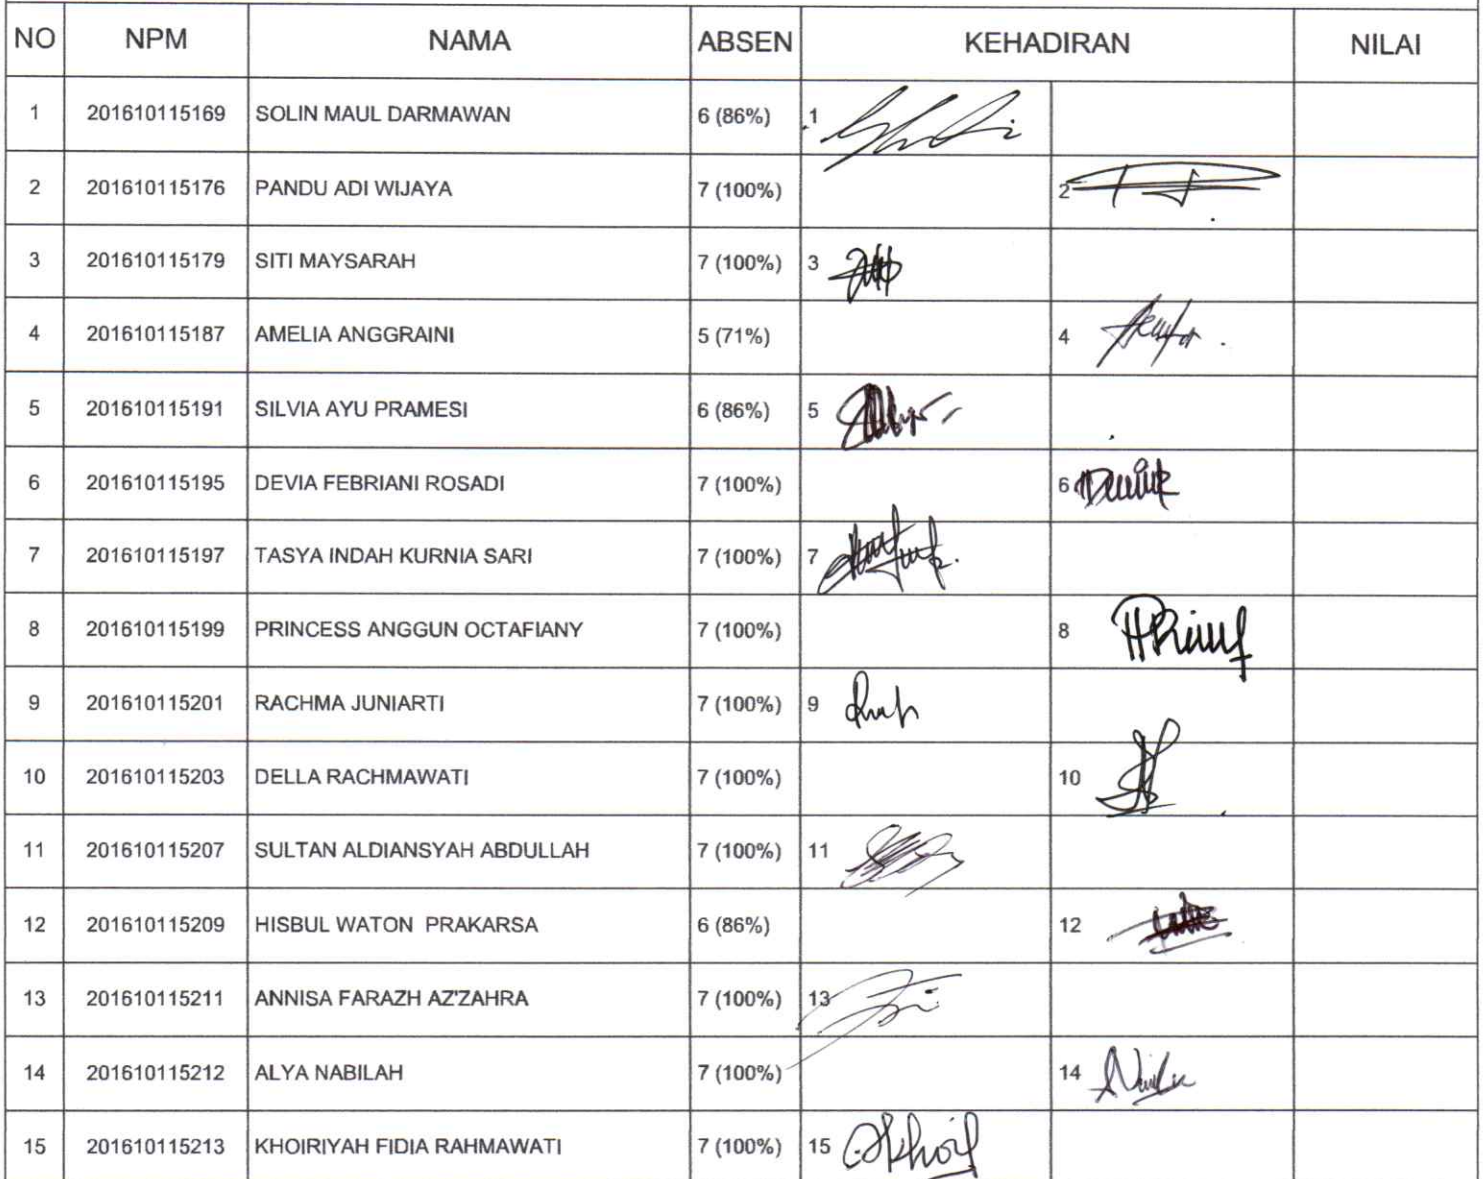 NO NPM NAMA ABSEN KEHADIRAN NILAI
1 201610115169 SOLIN MAUL DARMAWAN 6 (86%) 1
2 201610115176 PANDU ADI WIJAYA 7 (100%) 2
3 201610115179 SITI MAYSARAH 7 (100%) 3
4 201610115187 AMELIA ANGGRAINI 5 (71%) 4
5 201610115191 SILVIA AYU PRAMESI 6 (86%) 5
6 201610115195 DEVIA FEBRIANI ROSADI 7 (100%) 6
7 201610115197 TASYA INDAH KURNIA SARI 7 (100%) 7
8 201610115199 PRINCESS ANGGUN OCTAFIANY 7 (100%) 8
9 201610115201 RACHMA JUNIARTI 7 (100%) 9
10 201610115203 DELLA RACHMAWATI 7 (100%) 10
11 201610115207 SULTAN ALDIANSYAH ABDULLAH 7 (100%) 11
12 201610115209 HISBUL WATON PRAKARSA 6 (86%) 12
13 201610115211 ANNISA FARAZH AZ'ZAHRA 7 (100%) 13
14 201610115212 ALYA NABILAH 7 (100%) 14
15 201610115213 KHOIRIYAH FIDIA RAHMAWATI 7 (100%) 15